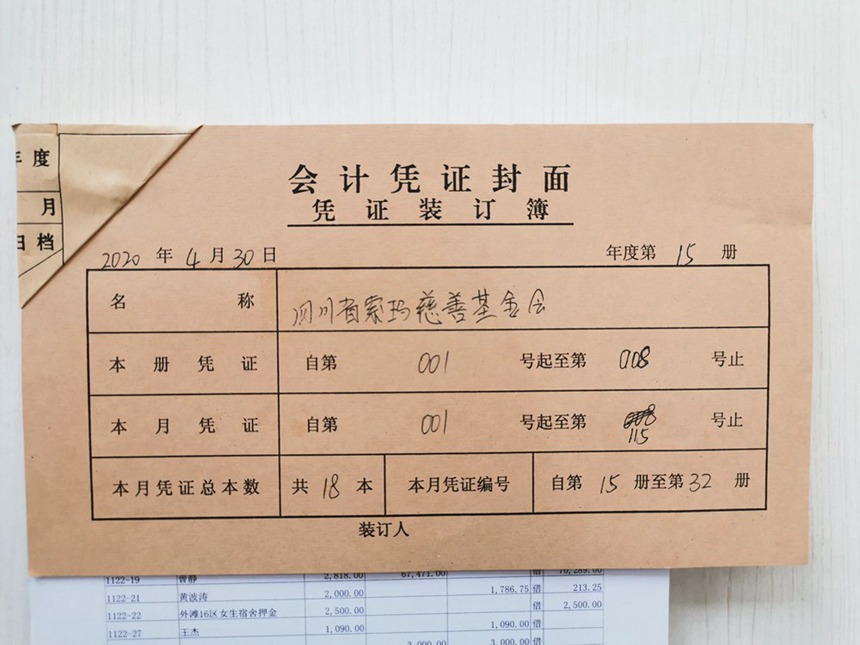 年度
月
归档
会计凭证封面
凭证装订簿
2020 年 4 月 30 日 年度第 15 册
名称 四川省索玛慈善基金会
本册凭证 自第 001 号起至第 008 号止
本月凭证 自第 001 号起至第 号止
115
本月凭证总本数 共 18 本 本月凭证编号 自第 15 册至第 32 册
装订人
1122-19 曾静 2,818.00 67,471.00 借 70,289.00
1122-21 黄波涛 2,000.00 1,786.75 借 213.25
1122-22 外滩16区女生宿舍押金 2,500.00 借 2,500.00
1122-27 王杰 1,090.00 1,090.00 借
3,000.00 3,000.00 借